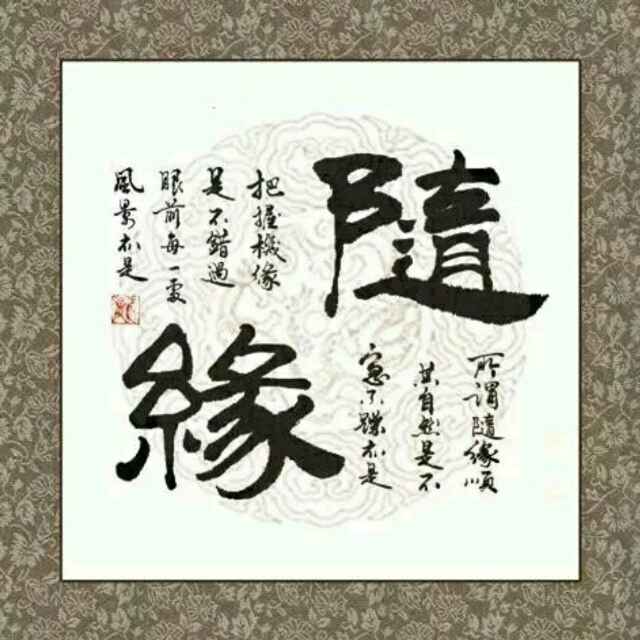 隨緣
所謂隨緣順
其自然是不
急不躁亦是
把握機緣
是不錯過
眼前每一處
風景亦是